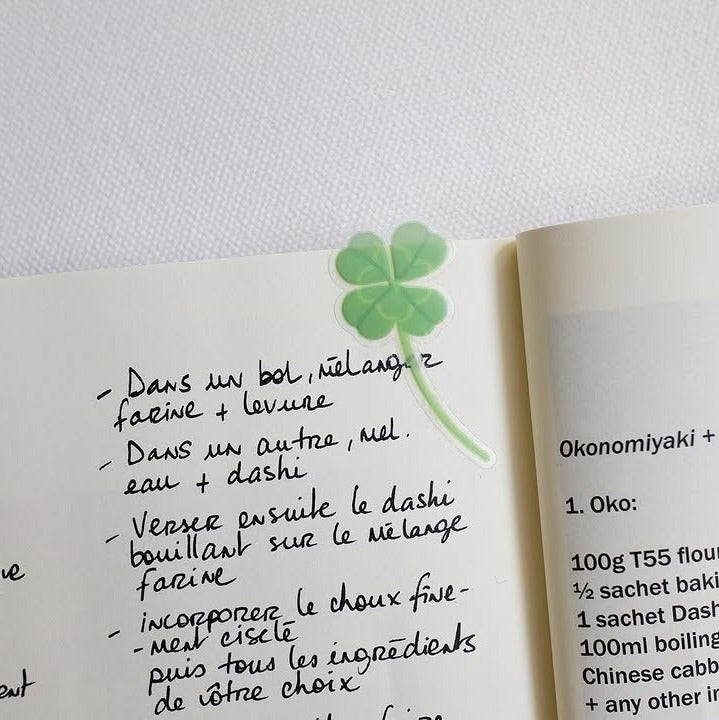 - Dans un bol, mélanger
farine + levure
- Dans un autre, mel.
eau + dashi
- Verser ensuite le dashi
bouillant sur le mélange
farine
- incorporer le choux fine-
-ment ciselé
puis tous les ingrédients
de vôtre choix
Okonomiyaki +
1. Oko:
100g T55 flour
½ sachet baki
1 sachet Dash
100ml boiling
Chinese cabb
+ any other in